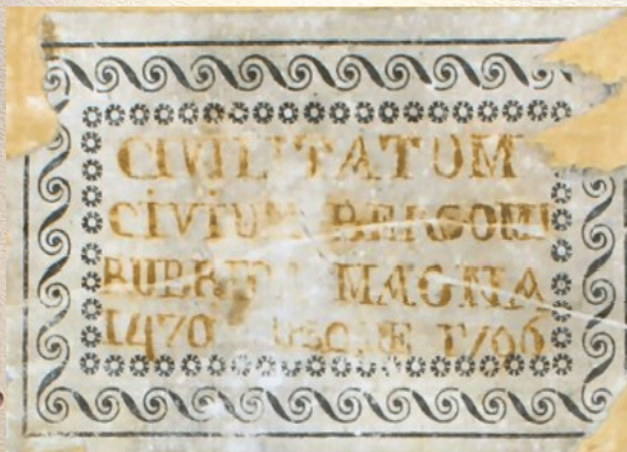 CIVILITATUM
CIVIUM BERGOMI
RUBRICA MAGNA
1470 USQUE 1796